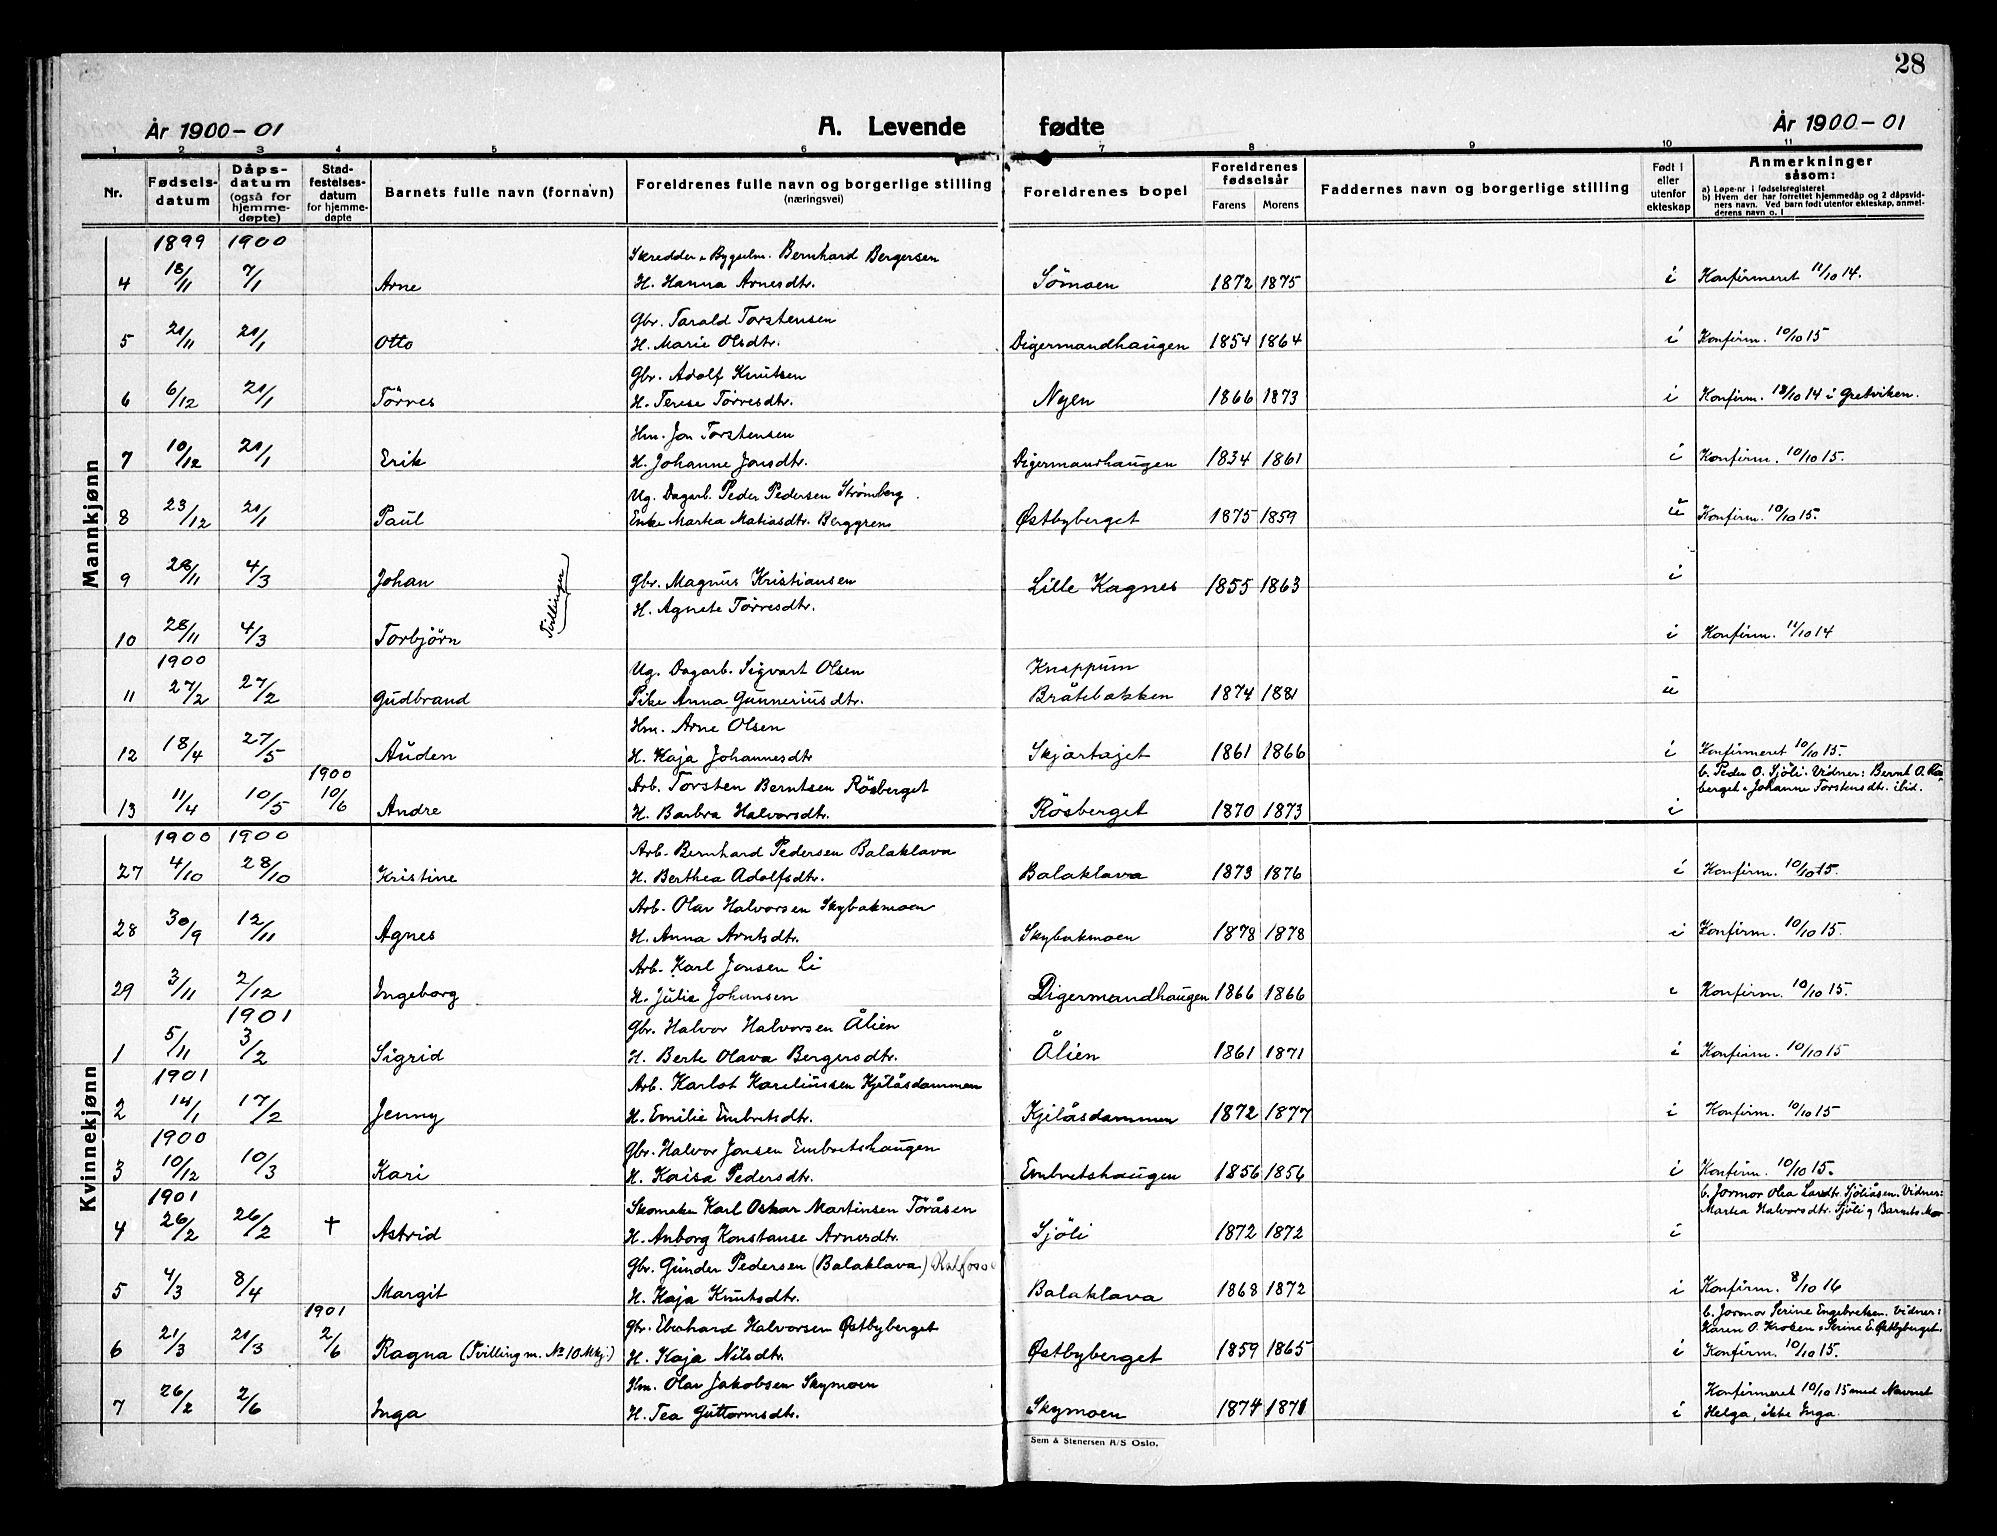 28
År 1900-01 A. Levende fødte År 1900-01
1 2 3 4 5 6 7 8 9 10 11
Nr. Fødselsdatum Dåpsdatum (også for hjemmedøpte) Stadfestelsesdatum for hjemmedøpte Barnets fulle navn (fornavn) Foreldrenes fulle navn og borgerlige stilling (næringsvei) Foreldrenes bopel Foreldrenes fødselsår Farens Morens Faddernes navn og borgerlige stilling Født i eller utenfor ekteskap Anmerkninger såsom:
a) Løpe-nr i fødselsregisteret
b) Hvem der har forrettet hjemmedåp og 2 dåpsvidners navn. Ved barn født utenfor ekteskap, anmelderens navn o. l
Mannkjønn
1899 1900 Skredder & Bygselm. Bernhard Bergersen
4 18/11 7/1 Arne H. Hanna Arnesdtr. Sömoen 1872 1875 i Konfirmeret 11/10 14.
Gbr. Tarald Torstensen
5 21/11 21/1 Otto H. Marie Olsdtr. Digermandhaugen 1854 1864 i Konfirm. 10/10 15
Gbr. Adolf Knutsen
6 6/12 21/1 Törres H. Terese Törresdtr. Nyen 1866 1873 i Konfirm. 18/10 14 i Gretviken.
Hm. Jon Torstensen
7 10/12 21/1 Erik H. Johanne Jonsdtr. Digermandhaugen 1834 1861 i Konfirm. 10/10 15.
Ug. Dagarb. Peder Pedersen Strömberg
8 23/12 21/1 Paul Enke Martea Matiasdtr. Berggren Østbyberget 1875 1859 u Konfirm. 10/10 15.
9 28/11 4/3 Johan Tvillinger Gbr. Magnus Kristiansen Lille Kagnes 1855 1863 i
H. Agnete Törresdtr.
10 28/11 4/3 Torbjörn i Konfirm. 11/10 14
1900 Ug. Dagarb. Sigvart Olsen Knappum
11 27/2 27/2 Gudbrand Pike Anna Gunneriusdtr. Bråtebakken 1874 1881 u
Hm. Arne Olsen
12 18/4 27/5 Auden H. Kaja Johannesdtr Skjærtajet 1861 1866 i Konfirmeret 10/10 15.
1900 Arb. Torsten Berntsen Rösberget b. Peder O. Sjöli. Vidner: Bernt O. Rös-
13 11/4 10/5 10/6 Andre H. Barbra Halvorsdtr. Rösberget 1870 1873 i berget & Johanne Torstensdtr. ibid.
Kvinnekjønn
1900 1900 Arb. Bernhard Pedersen Balaklava
27 4/10 28/10 Kristine H. Berthea Adolfsdtr. Balaklava 1873 1876 i Konfirm. 10/10 15.
Arb. Olav Halvorsen Skybakmoen
28 30/9 12/11 Agnes H. Anna Arntsdtr. Skybakmoen 1878 1878 i Konfirm. 10/10 15.
Arb. Karl Jonsen Li
29 3/11 2/12 Ingeborg H. Julie Johansen Digermandhaugen 1866 1866 i Konfirm. 10/10 15.
1901 Gbr. Halvor Halvorsen Ålien
1 5/11 3/2 Sigrid H. Berte Olava Bergersdtr. Ålien 1861 1871 i Konfirm. 10/10 15
1901 Arb. Karlot Kareliussen Kjilåsdammen
2 14/1 17/2 Jenny H. Emilie Embretsdtr. Kjilåsdammen 1872 1877 i Konfirm. 10/10 15
1900 Gbr. Halvor Jonsen Embretshaugen
3 10/12 10/3 Kari H. Kaisa Pedersdtr. Embretshaugen 1856 1856 i Konfirm. 10/10 15.
1901 Skomaker Karl Oskar Martinsen Töråsen b. Jormor Olea Larsdtr. Sjöliåsen. Vidner:
4 26/2 26/2 † Astrid H. Anborg Konstanse Arnesdtr. Sjöli 1872 1872 i Martea Halvorsdtr. Sjöli og Barnets Mor
Gbr. Gunder Pedersen (Balaklava)
5 4/3 8/4 Margit H. Kaja Knutsdtr. Balaklava 1868 1872 i Konfirm. 8/10 16
1901 Gbr. Eberhard Halvorsen Østbyberget b. Jormor Serine Engebretsen. Vidner: Karen O. Kroken & Serine E. Østbyberget.
6 21/3 21/3 2/6 Ragna (Tvilling m. No 10 Mkj.) H. Kaja Nilsdtr. Østbyberget 1859 1865 i Konfirm. 10/10 15.
Hm. Olav Jakobsen Skymoen Konfirmeret 10/10 15 med Navnet
7 26/2 2/6 Inga H. Tea Guttormsdtr. Skymoen 1874 1871 i Helga, ikke Inga.
Sem & Stenersen A/S Oslo.